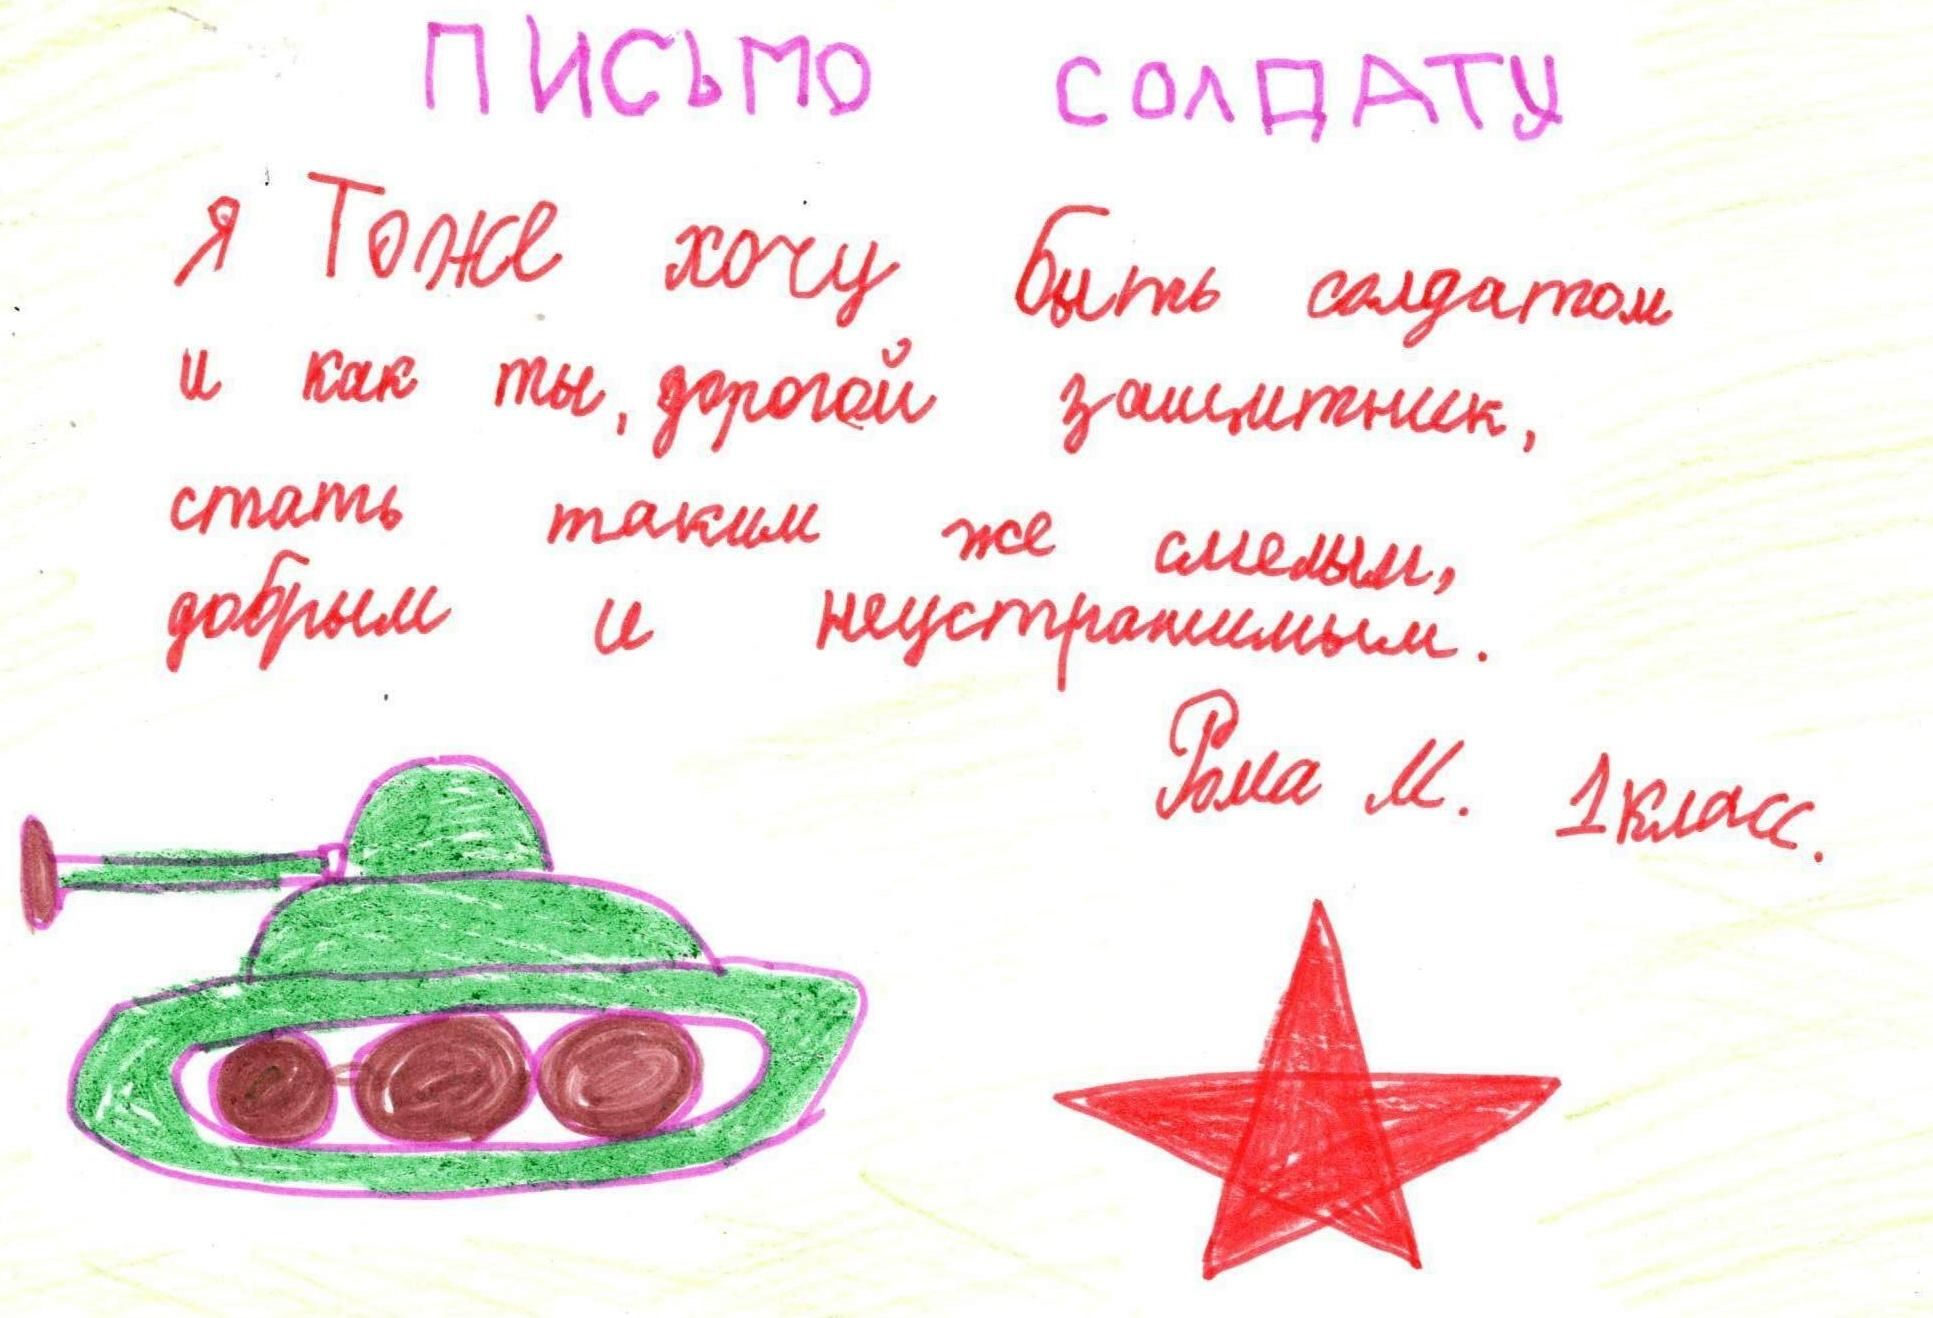 ПИСЬМО СОЛДАТУ
Я Тоже хочу быть солдатом
и как ты, дорогой защитник,
стать таким же смелым,
добрым и неустрашимым.
Рома М. 1 класс.